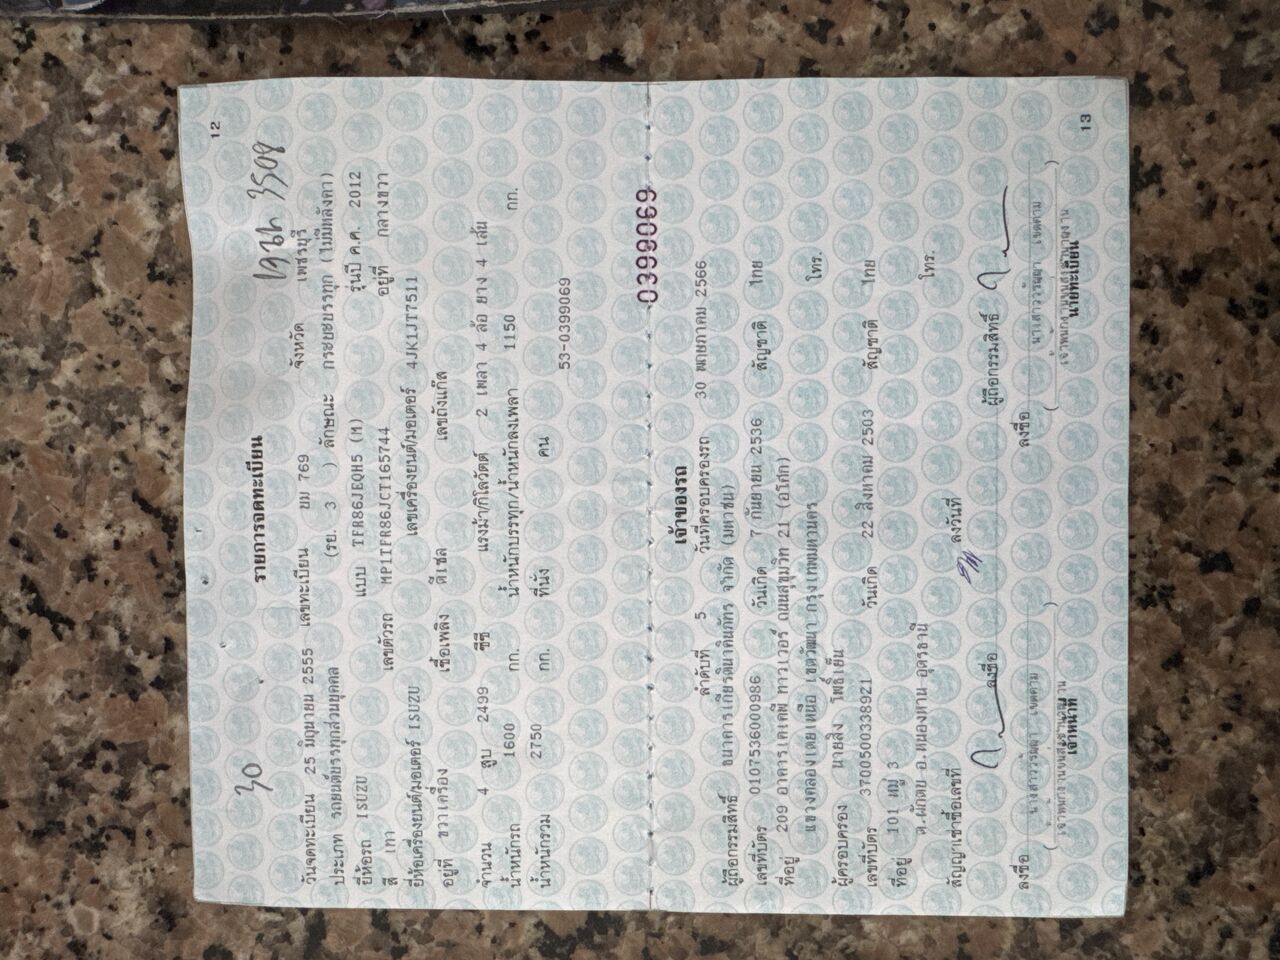 12
30
3508
รายการจดทะเบียน
วันจดทะเบียน 25 มิถุนายน 2555 เลขทะเบียน ยม 769 จังหวัด เพชรบุรี
ประเภท รถยนต์บรรทุกส่วนบุคคล (รย. 3 ) ลักษณะ กระบะบรรทุก (ไม่มีหลังคา)
ยี่ห้อรถ ISUZU แบบ TFR86JEQH5 (M) รุ่นปี ค.ศ. 2012
สี เทา เลขตัวรถ MP1TFR86JCT165744 อยู่ที่ กลางขวา
ยี่ห้อเครื่องยนต์/มอเตอร์ ISUZU เลขเครื่องยนต์/มอเตอร์ 4JK1JT7511
อยู่ที่ ขวาเครื่อง เชื้อเพลิง ดีเซล เลขถังแก๊ส
จำนวน 4 สูบ 2499 ซีซี แรงม้า/กิโลวัตต์ 2 เพลา 4 ล้อ ยาง 4 เส้น
น้ำหนักรถ 1600 กก. น้ำหนักบรรทุก/น้ำหนักลงเพลา 1150 กก.
น้ำหนักรวม 2750 กก. ที่นั่ง คน
53-0399069
0399069
เจ้าของรถ
ลำดับที่ 5 วันที่ครอบครองรถ 30 พฤษภาคม 2566
ผู้ถือกรรมสิทธิ์ ธนาคารเกียรตินาคินภัทร จำกัด (มหาชน)
เลขที่บัตร 0107536000986 วันเกิด 7 กันยายน 2536 สัญชาติ ไทย
ที่อยู่ 209 อาคารเคเคพี ทาวเวอร์ ถนนสุขุมวิท 21 (อโศก) โทร.
แขวงคลองเตยเหนือ เขตวัฒนา กรุงเทพมหานคร
ผู้ครอบครอง นายสิง โพธิ์เย็น
เลขที่บัตร 3700500338921 วันเกิด 22 สิงหาคม 2503 สัญชาติ ไทย
ที่อยู่ 101 หมู่ 3 โทร.
ต.ผักตบ อ.หนองหาน อุดรธานี
สัญญาเช่าซื้อเลขที่ ลงวันที่
ลงชื่อ ผู้ถือกรรมสิทธิ์
ลงชื่อ ลงชื่อ
เจ้าหน้าที่ นายทะเบียน
13